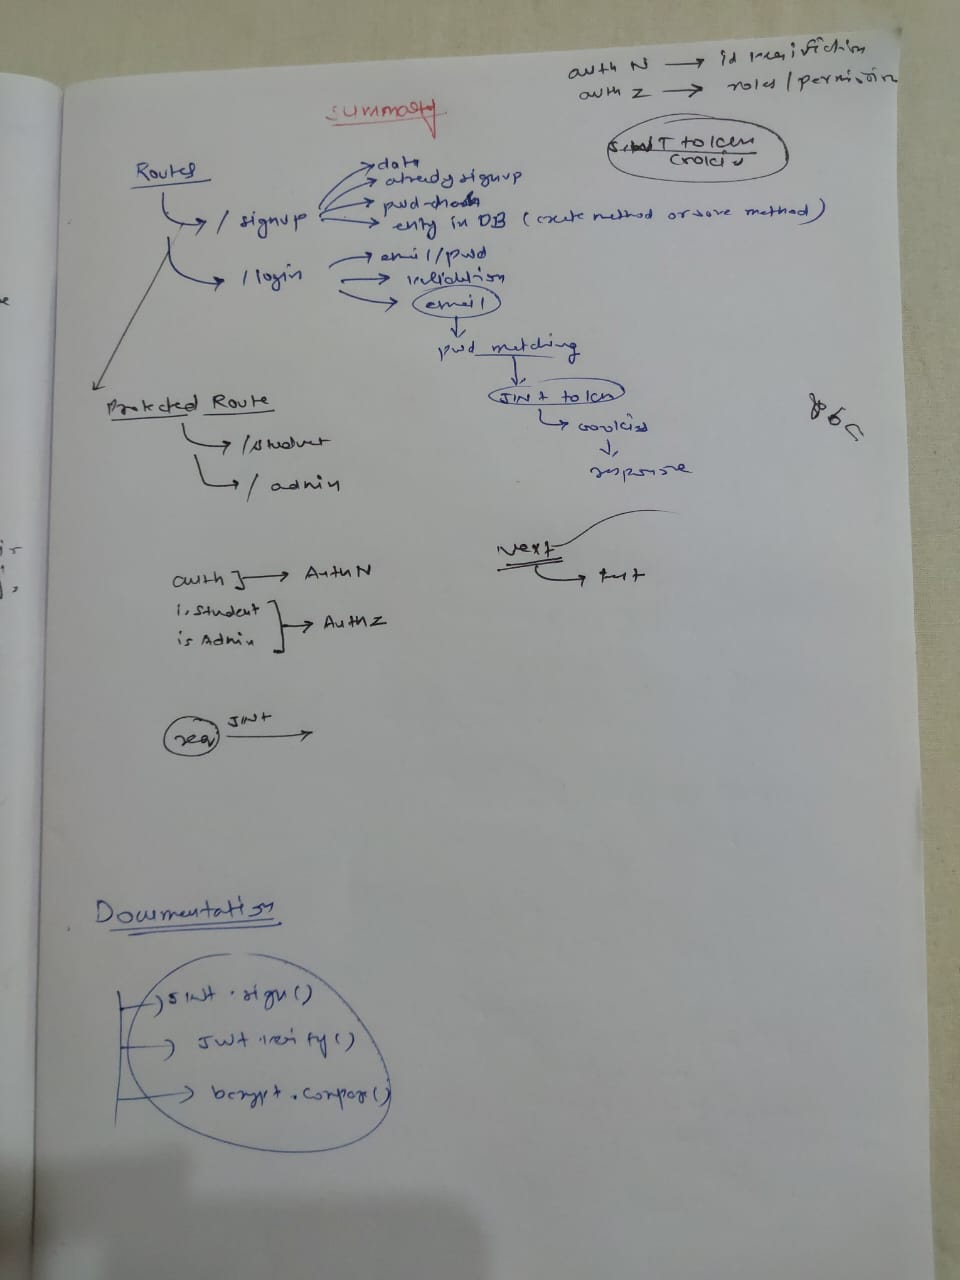 auth N → id verifiction
auth Z → roles / permission
Summary
JWT token
Cookie
Routes
/ signup
data
already signup
pwd-check
entry in DB ( create method or save method )
/ login
email/pwd
validation
email
pwd matching
JWT token
cookies
response
Protected Route
/student
/ admin
Next
auth ] → AuthN
isStudent
is Admin
→ AuthZ
req
JWT
Documentation
JWT . sign ( )
JWT . verify ( )
bcrypt . compar ( )